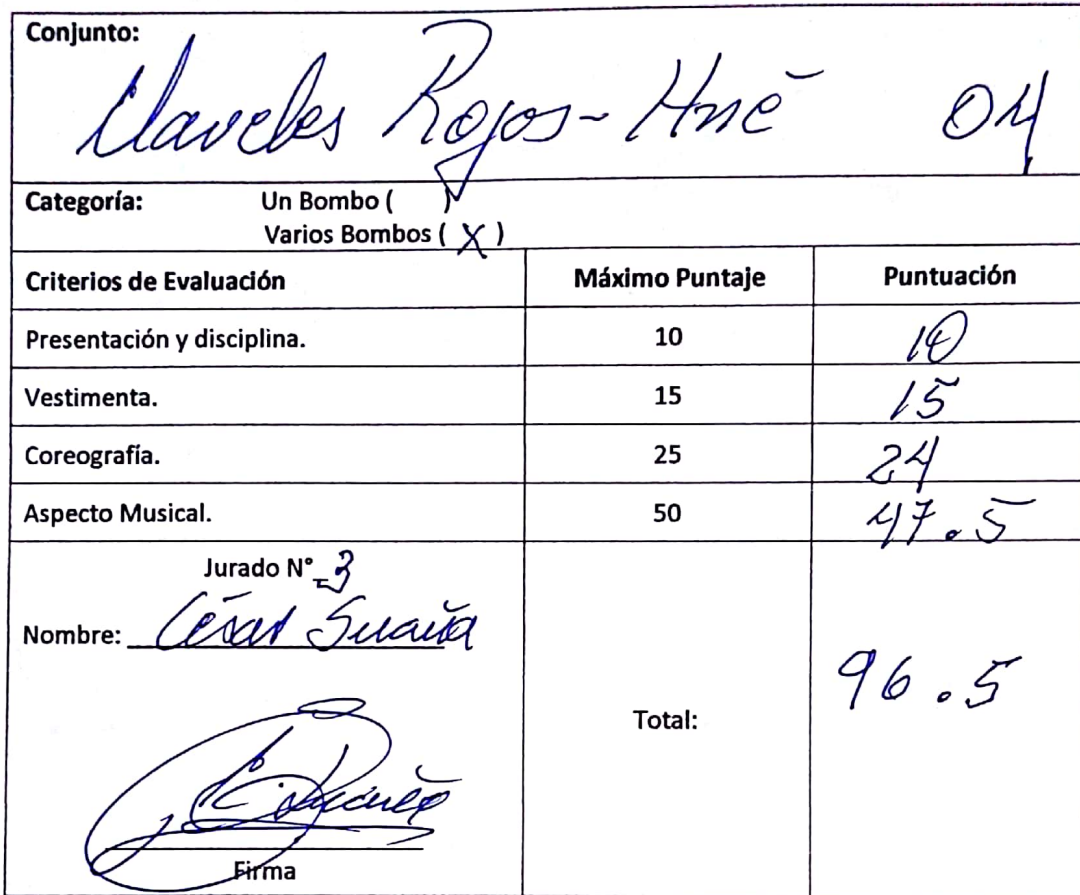 Conjunto:
Claveles Rojos - Hné 04
Categoría: Un Bombo ( )
Varios Bombos ( X )
Criterios de Evaluación Máximo Puntaje Puntuación
Presentación y disciplina. 10 10
Vestimenta. 15 15
Coreografía. 25 24
Aspecto Musical. 50 47.5
Jurado N° 3
Nombre: César Suaña
Total: 96.5
Firma